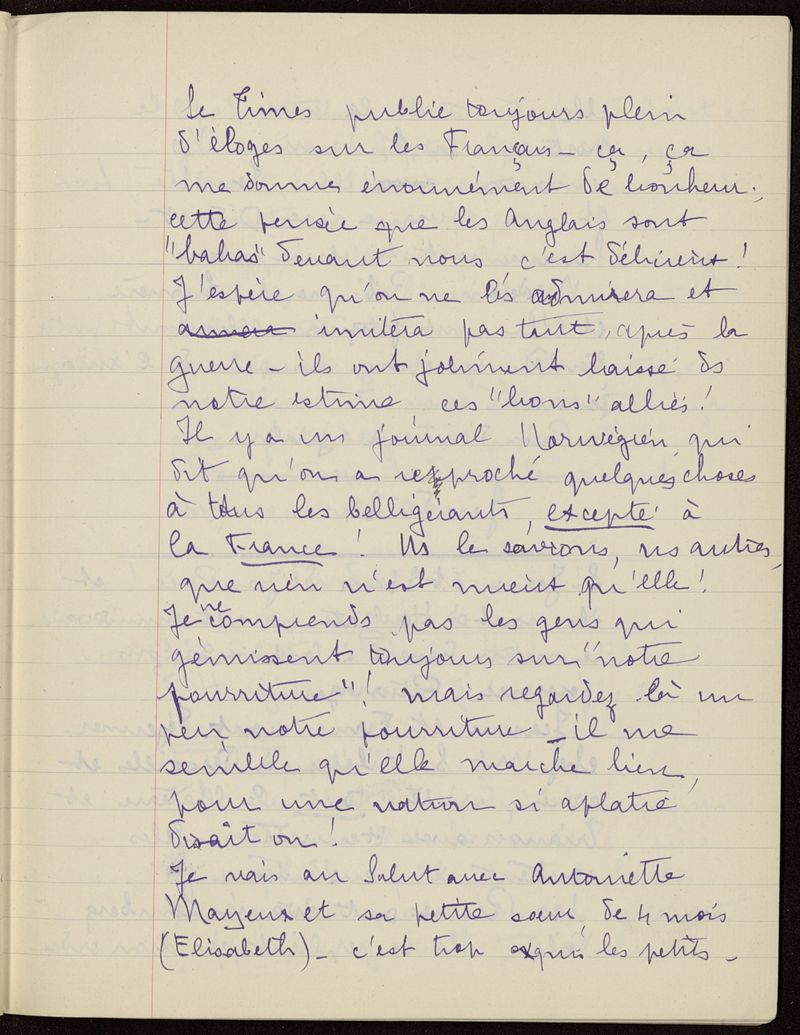 Le Times publie toujours plein
d'éloges sur les Français – ça, ça
me donne énormément de bonheur;
cette pensée que les Anglais sont
"babas" devant nous c'est délirant!
J'espère qu'on ne les admirera et
imitera pas tant, après la
guerre – ils ont joliment baissé ds
notre estime ces "bons" alliés!
Il y a un journal Norwégien qui
dit qu'on a reproché quelques choses
à tous les belligérants, excepté à
la France! Ns le savons, ns autres,
que rien n'est mieux qu'elle!
Je ne comprends pas les gens qui
gémissent toujours sur "notre
pourriture"! mais regardez là un
peu notre pourriture – il me
semble qu'elle marche bien,
pour une nation si aplatie
disait on!
Je vais au Salut avec Antoinette
Mayeux et sa petite soeur de 4 mois
(Elisabeth) – c'est trop exquis les petits –